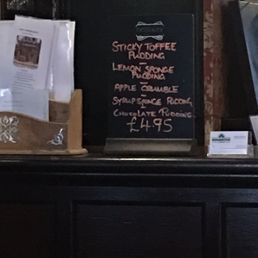 STICKY TOFFEE
PUDDING
LEMON SPONGE
PUDDING
APPLE CRUMBLE
SYRUP SPONGE PUDDING
CHOCOLATE PUDDING
£4.95